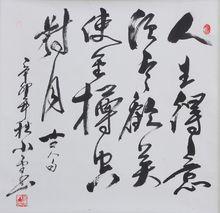 人生得意
须尽歡莫
使金樽空
對月 古人句
辛卯年 小雪書